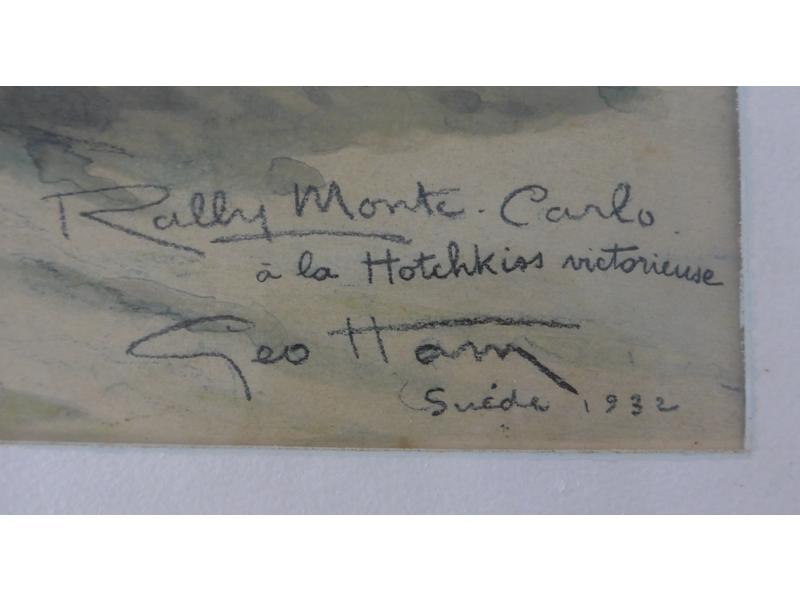 Rally Monte-Carlo
à la Hotchkiss victorieuse
Geo Ham
Suéde 1932